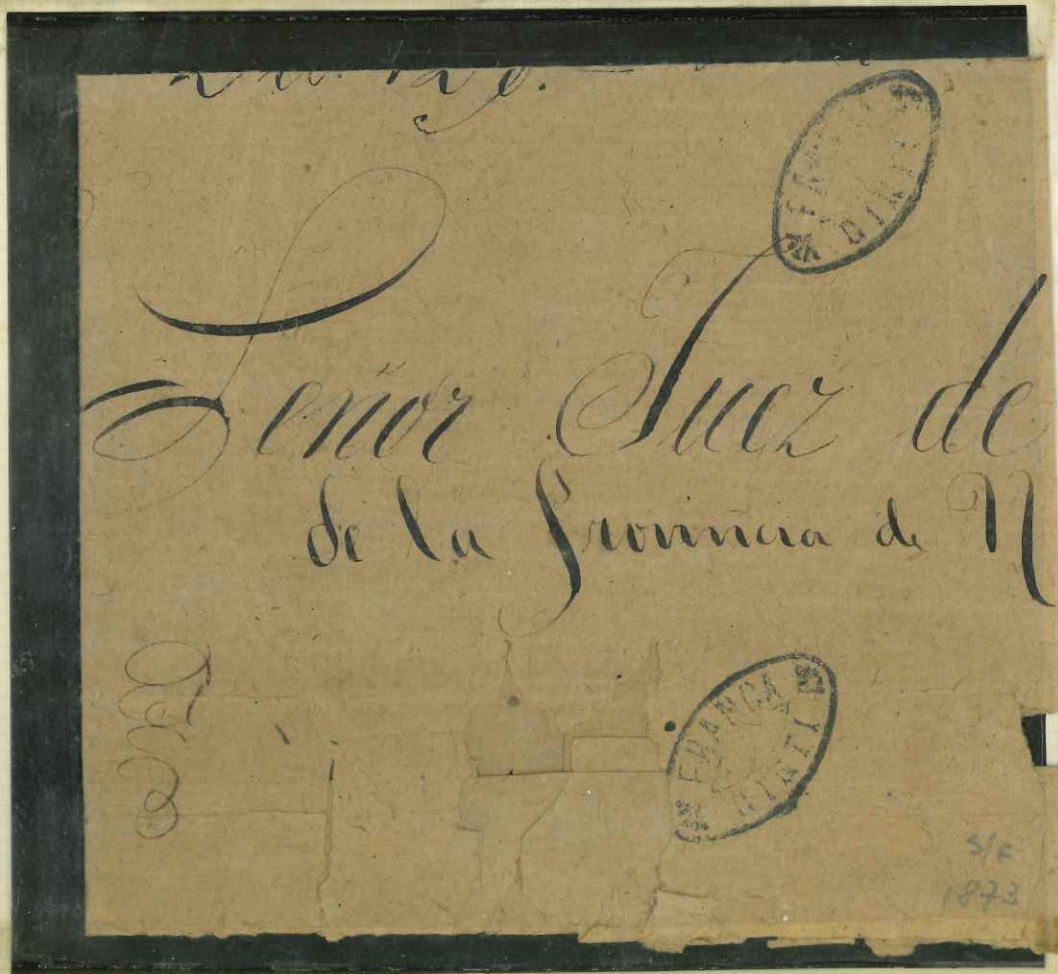 FRANCA
CINTI
Señor Juez de
de la Provincia de N
FRANCA
CINTI
S/F
1873